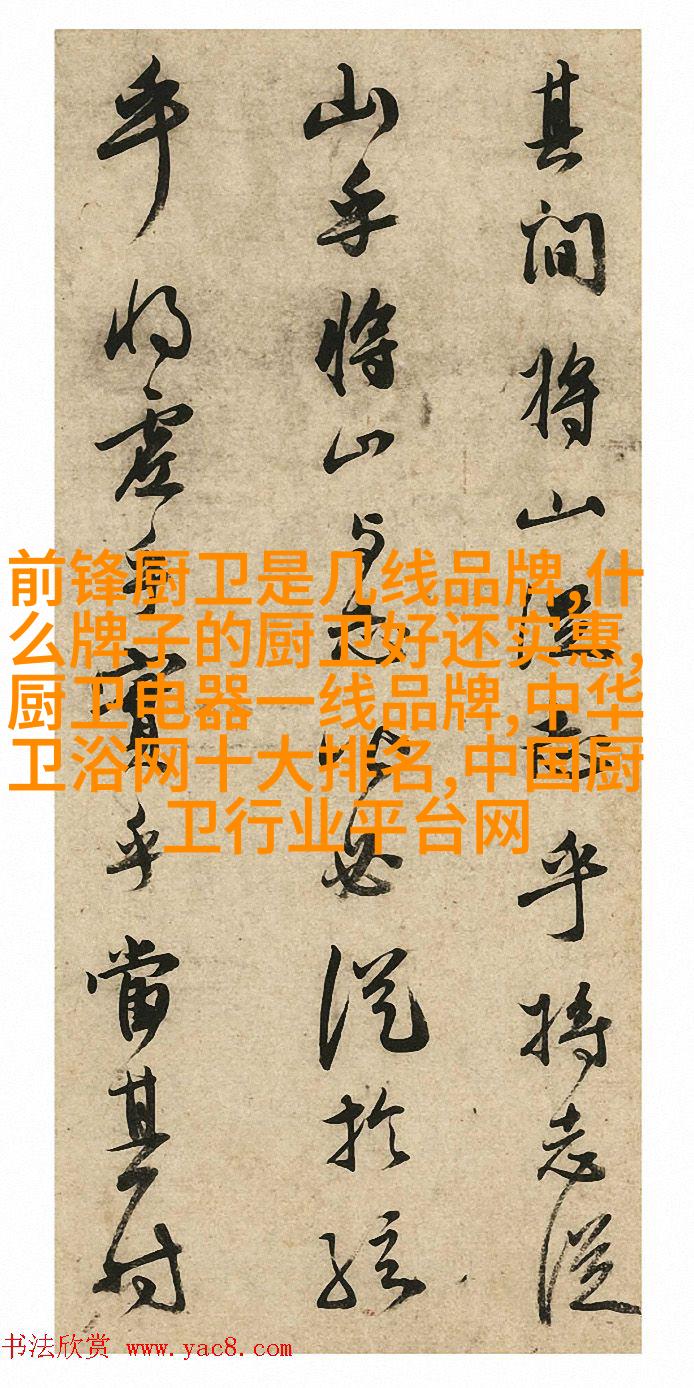 其间将山從
乎將志從
山乎將山與
必從於
乎将虚乎實乎當其时
前锋厨卫是几线品牌,什
么牌子的厨卫好还实惠,
厨卫电器一线品牌,中华
卫浴网十大排名,中国厨
卫行业平台网
书法欣赏 www.yac8.com